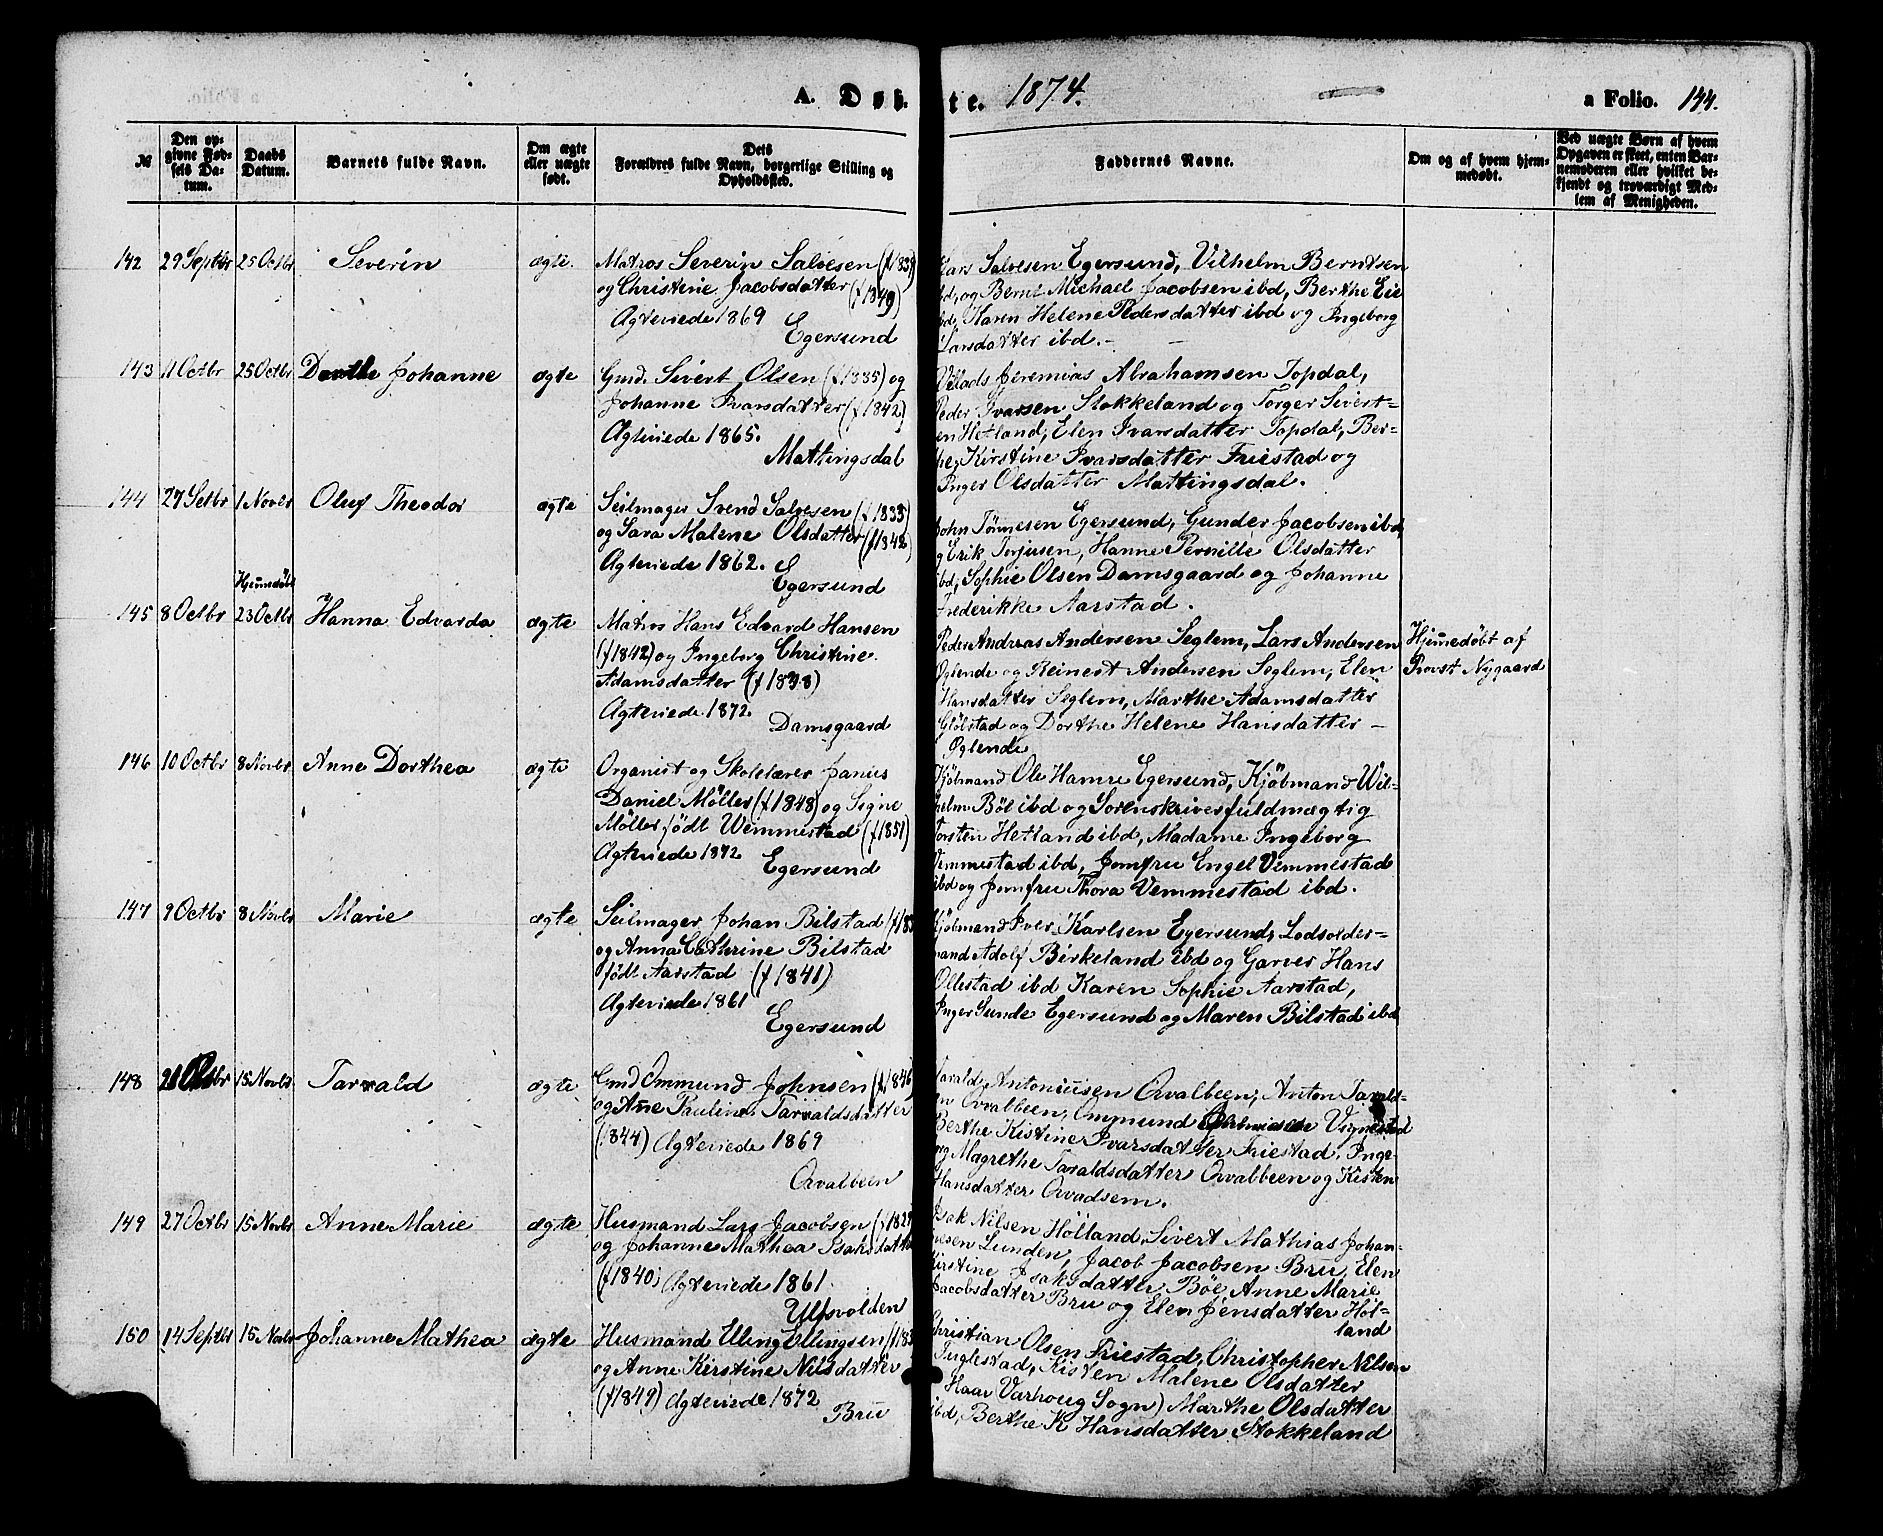 A. Døb- te. 1874. a Folio. 144.
№
Den op-
givne Fød-
sels Da-
tum.
Daabs
Datum.
Barnets fulde Navn.
Om ægte
eller uægte
født.
Dets
Forældres fulde Navn, borgerlige Stilling og
Opholdssted.
Faddernes Navne.
Om og af hvem hjem-
medøbt.
Ved uægte Børn af hvem
Opgaven er skeet, enten Bar-
nemoderen eller hvilket be-
kjendt og troværdigt Med-
lem af Menigheden.
142 29 Septbr 25 Octbr Severin ægte.
Matros Severin Salvesen
og Christine Jacobsdatter (f 1849)
Ægteviede 1869
Egersund
Lars Salvesen Egersund, Vilhelm Berntsen
ibd, og Bernt Michael Jacobsen ibd, Berthe Eie
ibd, Karen Helene Pedersdatter ibd og Ingeborg
Larsdatter ibd.
143 11 Octbr 25 Octbr Dorthe Johanne ægte
Gmd. Sivert Olsen (f 1835) og
Johanne Ivarsdatter (f 1842)
Ægteviede 1865.
Mattingsdal
Villads Jeremias Abrahamsen Topdal,
Peder Ivarsen Stokkeland og Torger Sivert-
en Hetland, Elen Ivarsdatter Topdal, Ber-
the Kirstine Ivarsdatter Friestad og
Inger Olsdatter Mattingsdal.
144 27 Setbr 1 Novbr Oluf Theodor ægte
Seilmager Svend Salvesen (f 1835)
og Sara Malene Olsdatter (f 1842)
Ægteviede 1862.
Egersund
John Tønnesen Egersund, Gunder Jacobsen ibd,
og Erik Terjesen, Hanne Pernille Olsdatter
ibd, Sophie Olsen Damsgaard og Johanne
Frederikke Aarstad.
Hjemdøbt
145 8 Octbr 23 Octbr Hanna Edvarda ægte
Matros Hans Edvard Hansen
(f 1842) og Ingeborg Christine
Adamsdatter
Ægteviede 1872.
Damsgaard
Peder Andreas Andersen Seglem, Lars Andersen
Øglende og Reinert Andersen Seglem, Elen
Hansdatter Seglem, Marthe Adamsdatter
Gløbstad og Dorthe Helene Hansdatter
Øglende
Hjemedøbt af
Provst Nygaard
146 10 Octbr 8 Novbr Anne Dorthea ægte
Organist og Skolelærer Janus
Daniel Møller (f 1848) og Signe
Møller født Wemmestad (f 1851)
Ægteviede 1872
Egersund
Kjøbmand Ole Hamre Egersund, Kjøbmand Wil-
helm Bøe ibd og Sorenskriverfuldmægtig
Torsten Hetland ibd, Madame Ingeborg
Vemmestad ibd, Jomfru Engel Vemmestad
ibd og Jomfru Thora Vemmestad ibd.
147 9 Octbr 8 Novbr Marie ægte
Seilmager Johan Bilstad (f 183
og Anna Cathrine Bilstad
født Aarstad (f 1841)
Ægteviede 1861
Egersund
Kjøbmand Iver Karlsen Egersund, Lodsolder-
mand Adolf Birkeland ibd og Garver Hans
Ollestad ibd Karen Sophie Aarstad,
Inger Sunde Egersund og Maren Bilstad ibd
148 15 Novbr Tarvald ægte
Gmd Ommund Johnsen (f 1846)
og Ane Pauline Tarvaldsdatter
(1844) Ægteviede 1869
Qvalbeen
Tarald Antoniusen Qvalbeen, Anton Tarald-
Qvalbeen, Ommund Vignestad
Berthe Kistine Ivarsdatter Friestad, Inge-
og Magrethe Taraldsdatter Qvalbeen og Kisten
Hansdatter Qvadsem.
149 27 Octbr 15 Novbr Anne Marie ægte
Husmand Lars Jacobsen
og Johanne Mathea Isaksdatter
(f 1840) Ægteviede 1861.
Ulfsvolden
Isak Nilsen Hølland, Sivert Mathias Johan-
nesen Lunden, Jacob Jacobsen Bru, Elen
Kirstine Isaksdatter Bøe, Anne Marie
Jacobsdatter Bru og Elen Jensdatter Høl-
land
150 14 Septbr 15 Novbr Johanne Mathea ægte
Husmand Elling Ellingsen (f 183
og Anne Kirstine Nilsdatter
(f 1849) Ægteviede 1872
Bru
Christian Olsen Friestad, Christopher Nilsen
Fuglestad, Kisten Malene Olsdatter
Haar Varhoug Sogn) Marthe Olsdatter
ibd, Berthe K Hansdatter Stokkeland